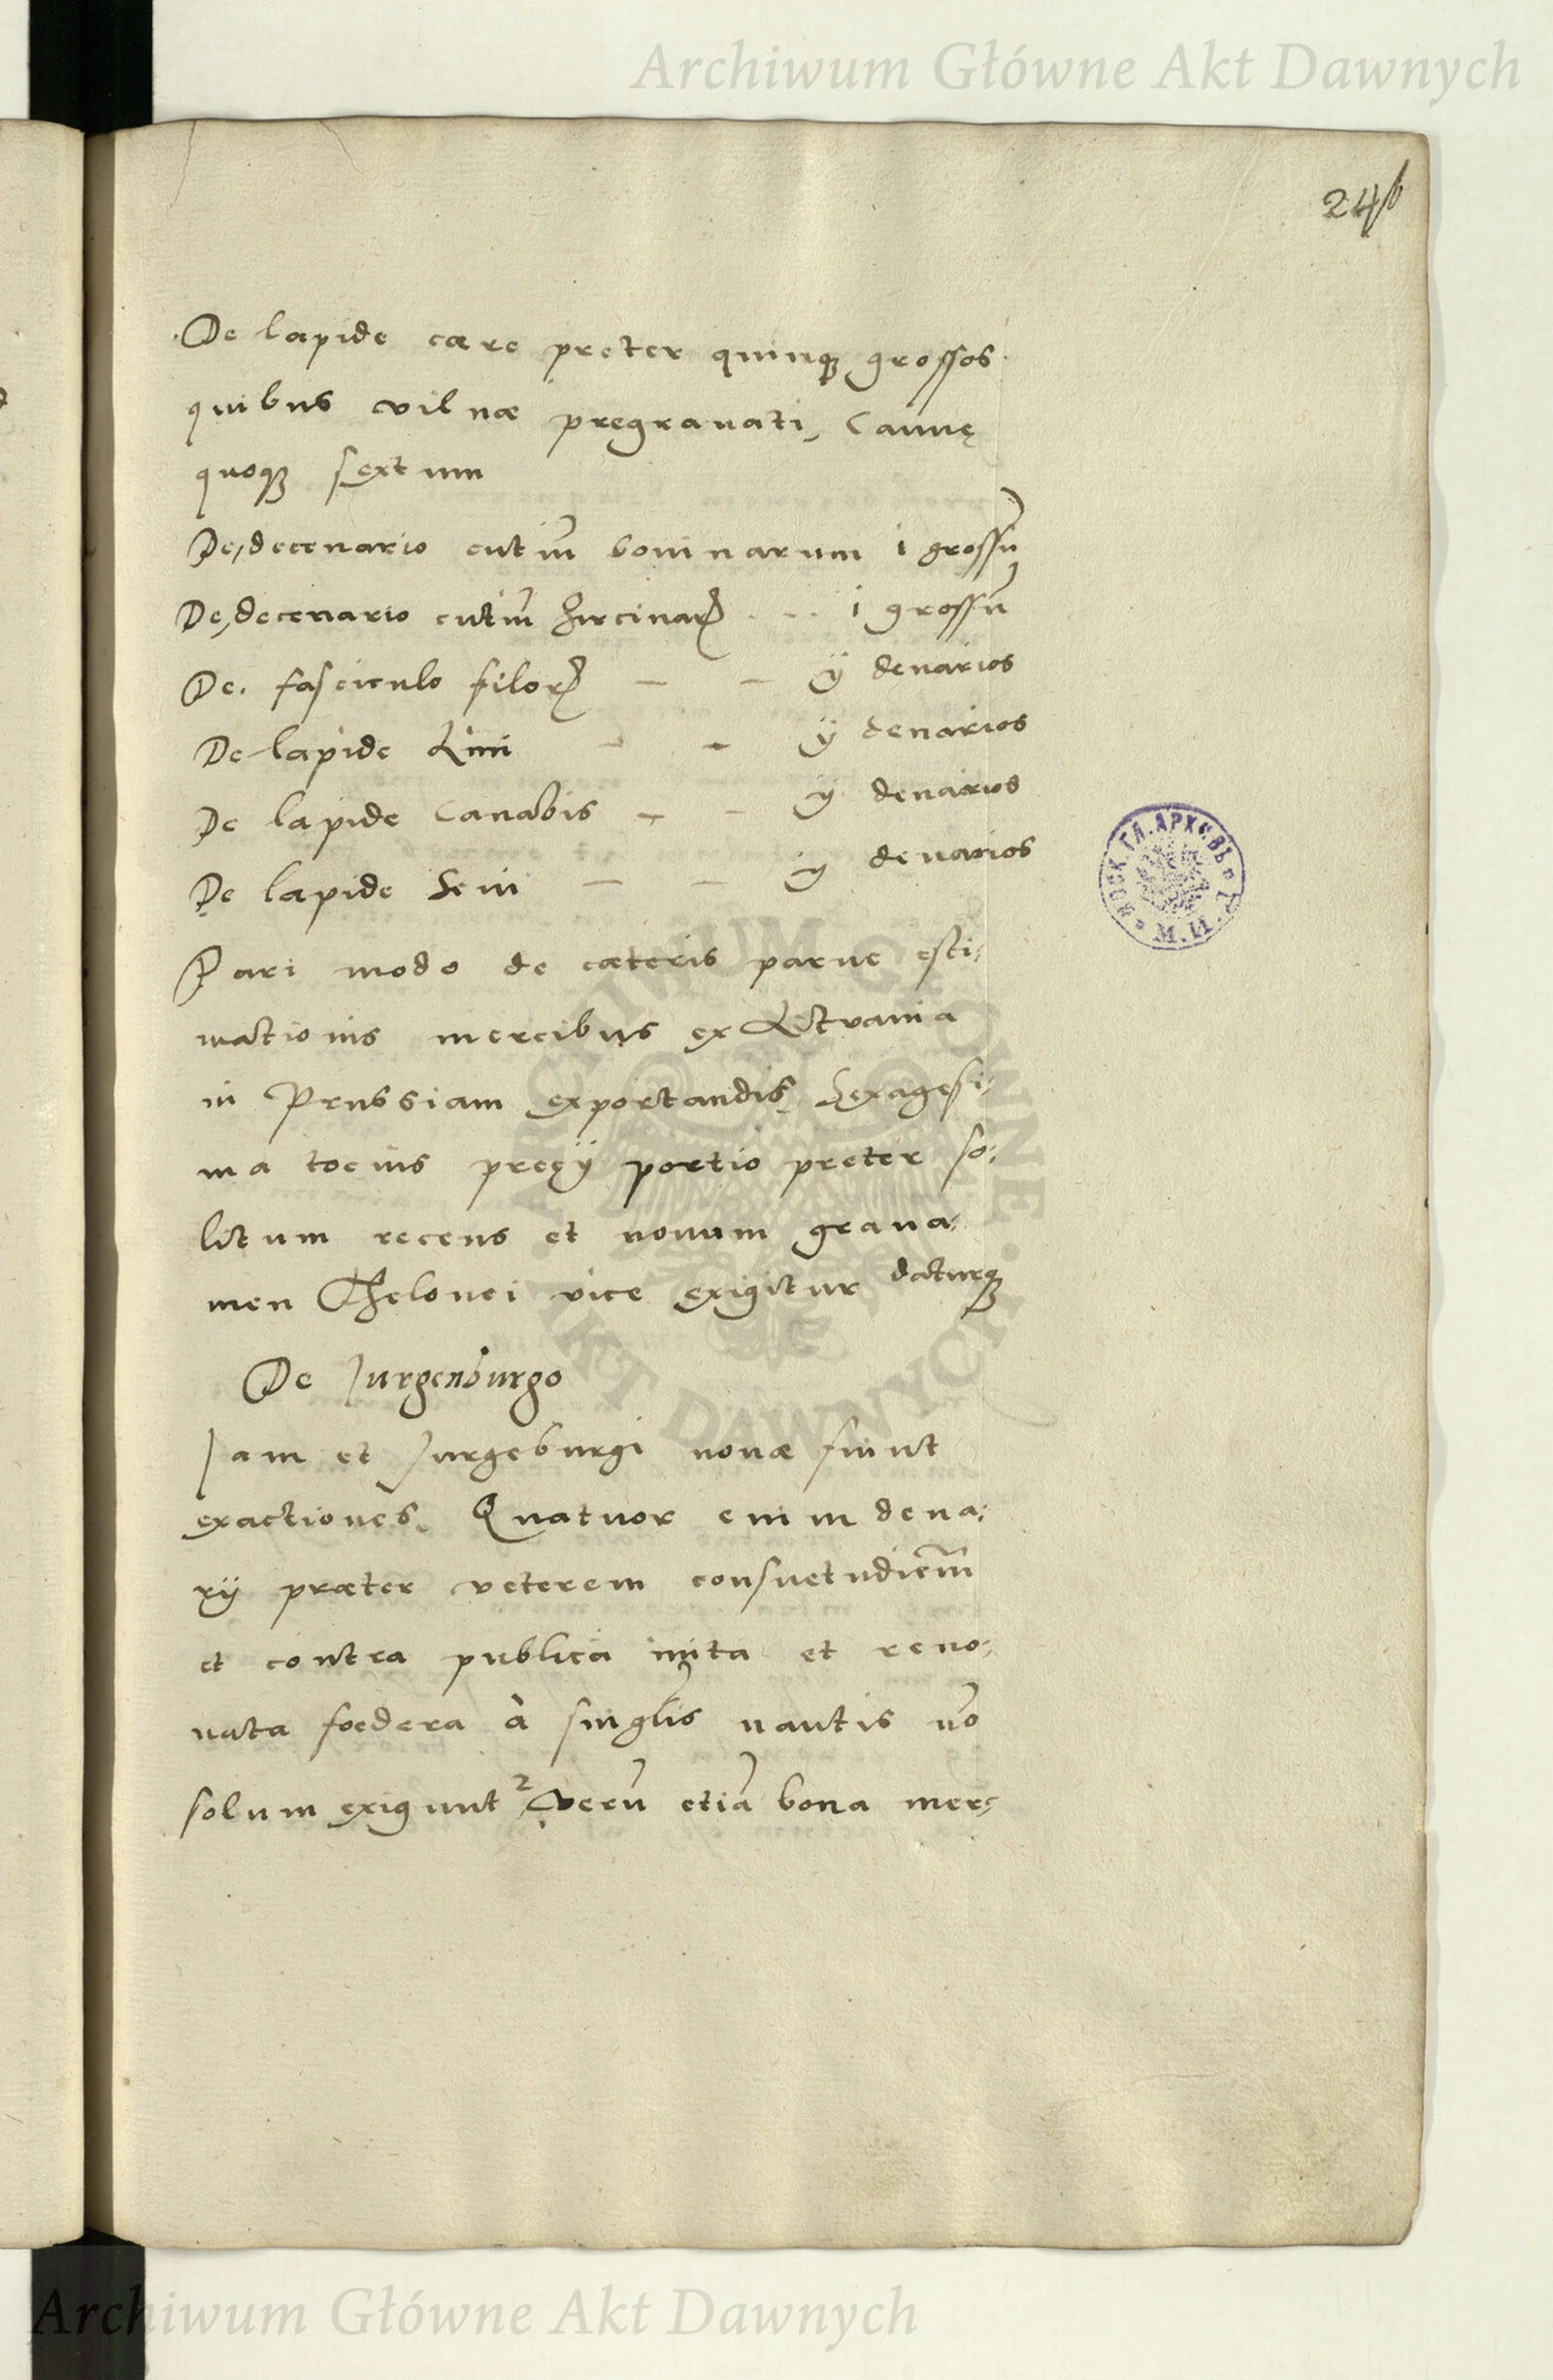 Archiwum Główne Akt Dawnych
24
De lapide cære preter quinqꝫ grossos
quibus vilnæ pregrauati, Caunę
quoqꝫ sextum
De decenario cutiũ bouinarum i grossũ
De decenario cutiũ hircinaꝝ - - i grossũ
De fasciculo filoꝝ - - ij denarios
De lapide Lini - - ij denarios
De lapide Canabis - - ij denarios
De lapide Seui - - ij denarios
Pari modo de cæteris parue esti:
mationis mercibus ex Lituania
in Prussiam exportandis Sexagesi:
ma tocius precij portio preter so:
litum recens et nouum graua:
men Thelonei vice exigitur daturqꝫ
De Jurgenburgo
Jam et Jurgeburgi nouæ fiunt
exactiones. Quatuor enim dena:
rij præter veterem consuetudiem̃
et contra publica inita et reno:
uata foedera à singłis nautis nõ
solum exigunt² Verũ etiã bona mer:
МОСК. ГЛ. АРХИВЪ М. И. Д.
ARCHIWUM GŁÓWNE AKT DAWNYCH
Archiwum Główne Akt Dawnych